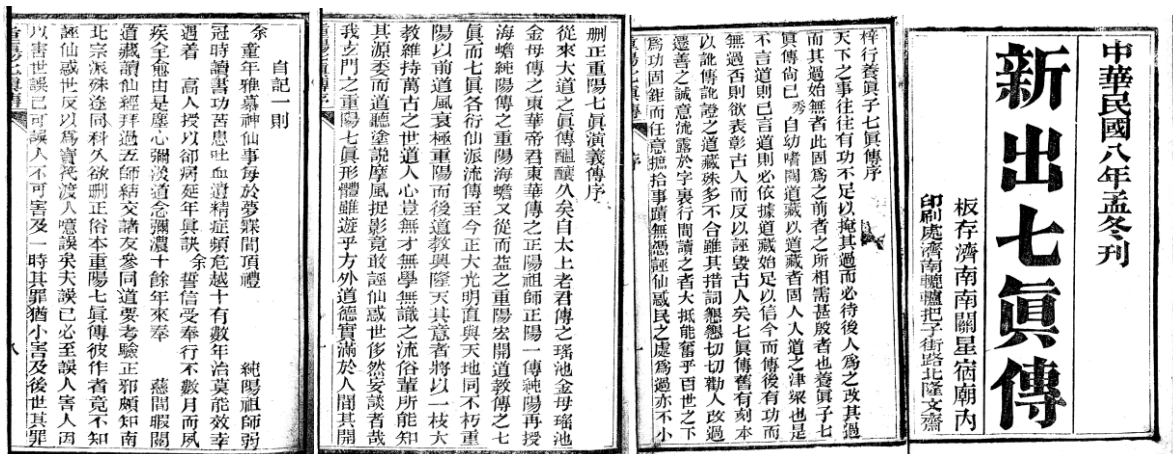 中華民國八年孟冬刊
新出七眞傳
板存濟南南關星宿廟內
印刷處濟南轆轤把子街路北隆文齋
梓行養眞子七眞傳序
天下之事往往有功不足以掩其過而必待後人爲之改其過
而其過始無者此固爲之前者之所相需甚殷者也養眞子七
眞傳尙已秀自幼嗜閱道藏以道藏者固人人道之津梁也是
不言道則已言道則必依據道藏始足以信今而傳後有功而
無過否則欲表彰古人而反以誣毀古人矣七眞傳舊有刻本
以訛傳訛證之道藏殊多不合雖其措詞懇懇切切勸人改過
遷善之誠意流露於字裏行間讀之者大抵能奮乎百世之下
爲功固鉅而任意摭拾事蹟無憑誣仙惑民之處爲過亦不小
重陽七眞傳 序
删正重陽七眞演義傳序
從來大道之眞傳醞釀久矣自太上老君傳之瑤池金母瑤池
金母傳之東華帝君東華傳之正陽祖師正陽一傳純陽再授
海蟾純陽傳之重陽海蟾又從而益之重陽宏開道敎傳之七
眞而七眞各衍仙派流傳至今正大光明直與天地同不朽重
陽以前道風衰極重陽而後道敎興隆天其意者將以一枝大
敎維持萬古之世道人心豈無才無學無識之流俗輩所能知
其源委而道聽塗說摩風捉影竟敢誣仙惑世侈然妄談者哉
我玄門之重陽七眞形體雖遊乎方外道德實滿於人間其開
重陽七眞傳序
自記一則
余童年雅慕神仙事每於夢寐間頂禮 純陽祖師弱
冠時讀書功苦患吐血遺精症頻危越十有數年治莫能效幸
遇着 高人授以卻病延年眞訣余誓信受奉行不數月而夙
疾全愈由是塵心彌淡道念彌濃十餘年來奉 慈間暇閱
道藏讀仙經拜過五師結交諸友參同道要考驗正邪頗知南
北宗派殊途同科久欲删正俗本重陽七眞傳彼作者竟不知
誣仙惑世反以爲賣筏渡人噫誤矣夫誤已必至誤人害人因
以害世誤已可誤人不可害及一時其罪猶小害及後世其罪